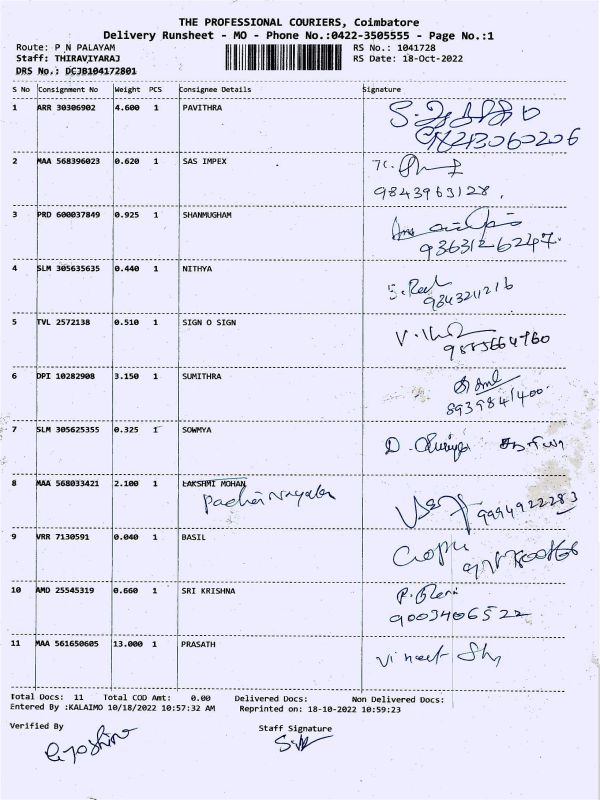 THE PROFESSIONAL COURIERS, Coimbatore
Delivery Runsheet - MO - Phone No.:0422-3505555 - Page No.:1
Route: P N PALAYAM RS No.: 1041728
Staff: THIRAVIYARAJ RS Date: 18-Oct-2022
DRS No.: DCJB104172801
S No Consignment No Weight PCS Consignee Details Signature
1 ARR 30306902 4.600 1 PAVITHRA
2 MAA 568396023 0.620 1 SAS IMPEX
9843963128.
3 PRD 600037849 0.925 1 SHANMUGHAM
9363126247.
4 SLM 305635635 0.440 1 NITHYA
9843211216
5 TVL 2572138 0.510 1 SIGN O SIGN
6 DPI 10282908 3.150 1 SUMITHRA
8939841400.
7 SLM 305625355 0.325 1 SOWMYA
8 MAA 568033421 2.100 1 LAKSHMI MOHAN
9994922283
9 VRR 7130591 0.040 1 BASIL
10 AMD 25545319 0.660 1 SRI KRISHNA
9003406522
11 MAA 561650605 13.000 1 PRASATH
Vineet
Total Docs: 11 Total COD Amt: 0.00 Delivered Docs: Non Delivered Docs:
Entered By :KALAIMO 10/18/2022 10:57:32 AM Reprinted on: 18-10-2022 10:59:23
Verified By Staff Signature